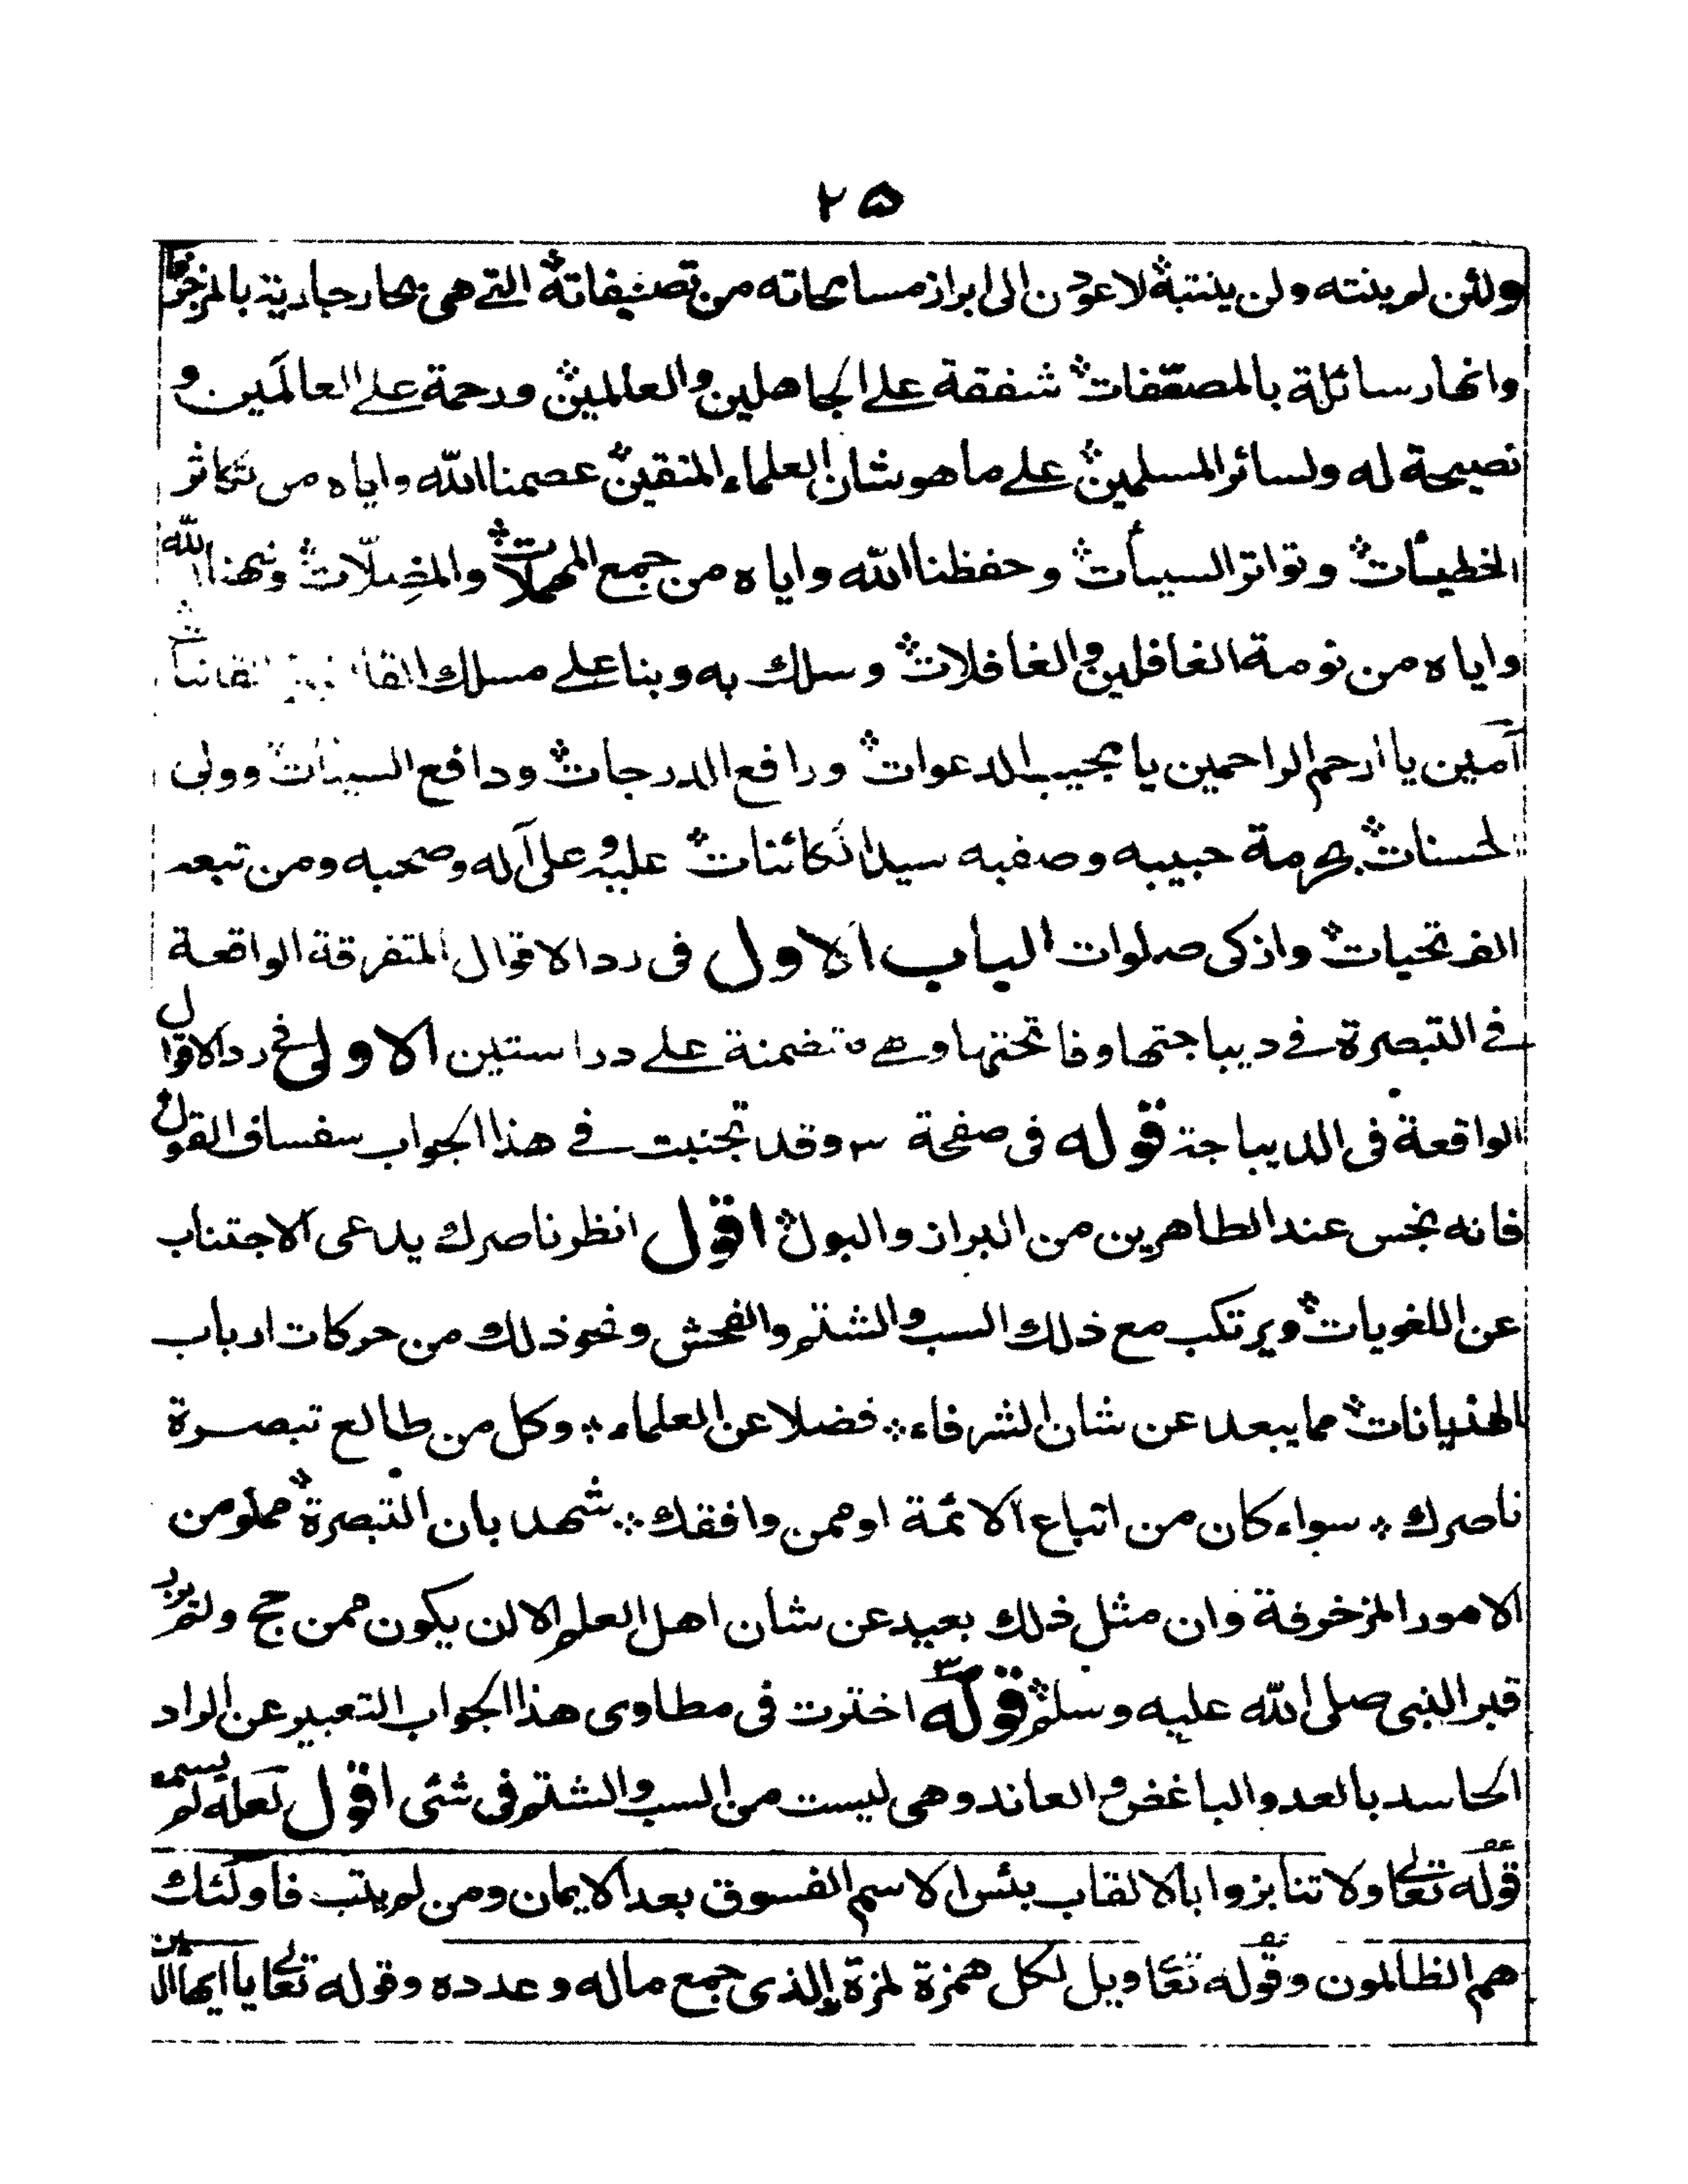 ٢٥
ولئن لم ينته ولن ينتبه لاعودن الى ابراز مسامحاته من تصنيفاته التي هي بحار جارية بالمزخرفات
وانهار سائلة بالمصحفات شفقة على الجاهلين والعالمين ورحمة على العالمين و
نصيحة له ولسائر المسلمين على ما هو شان العلماء المتقين عصمنا الله واياه من تكاثر
الخطيئات وتواتر السيئات وحفظنا الله واياه من جمع المهملات والمضلات ونبهنا الله
واياه من نومة الغافلين والغافلات وسلك به وبنا على مسلك
آمين يا ارحم الراحمين يا مجيب الدعوات ورافع الدرجات ودافع السيئات وولي
الحسنات بحرمة حبيبه وصفيه سيد الكائنات عليه وعلى آله وصحبه ومن تبعه
الف تحيات وازكى صلوات الباب الاول فى رد الاقوال المتفرقة الواقعة
في التبصرة في ديباجتها وفاتحتها وهي متضمنة على دراستين الاولى في رد الاقوال
الواقعة فى الديباجة قوله فى صفحة ٣ وقد تجنبت في هذا الجواب سفساف القول
فانه نجس عند الطاهرين من البراز والبول اقول انظر ناصرك يدعى الاجتناب
عن اللغويات ويرتكب مع ذلك السب والشتم والفحش ونحو ذلك من حركات ارباب
الهذيانات مما يبعد عن شان الشرفاء فضلا عن العلماء وكل من طالع تبصرة
ناصرك سواء كان من اتباع الائمة او ممن وافقك شهد بان التبصرة مملو من
الامور المزخرفة وان مثل ذلك بعيد عن شان اهل العلم الا لن يكون ممن حج ولم يزر
قبر النبي صلى الله عليه وسلم قوله اخترت فى مطاوى هذا الجواب التعبير عن الراد
الحاسد بالعدو الباغض والعاند وهى ليست من السب والشتم فى شئى اقول لعله لم يسمع
قوله تعالى ولا تنابزوا بالالقاب بئس الاسم الفسوق بعد الايمان ومن لم يتب فاولئك
هم الظالمون وقوله تعالى ويل لكل همزة لمزة الذى جمع ماله وعدده وقوله تعالى يا ايها الذين